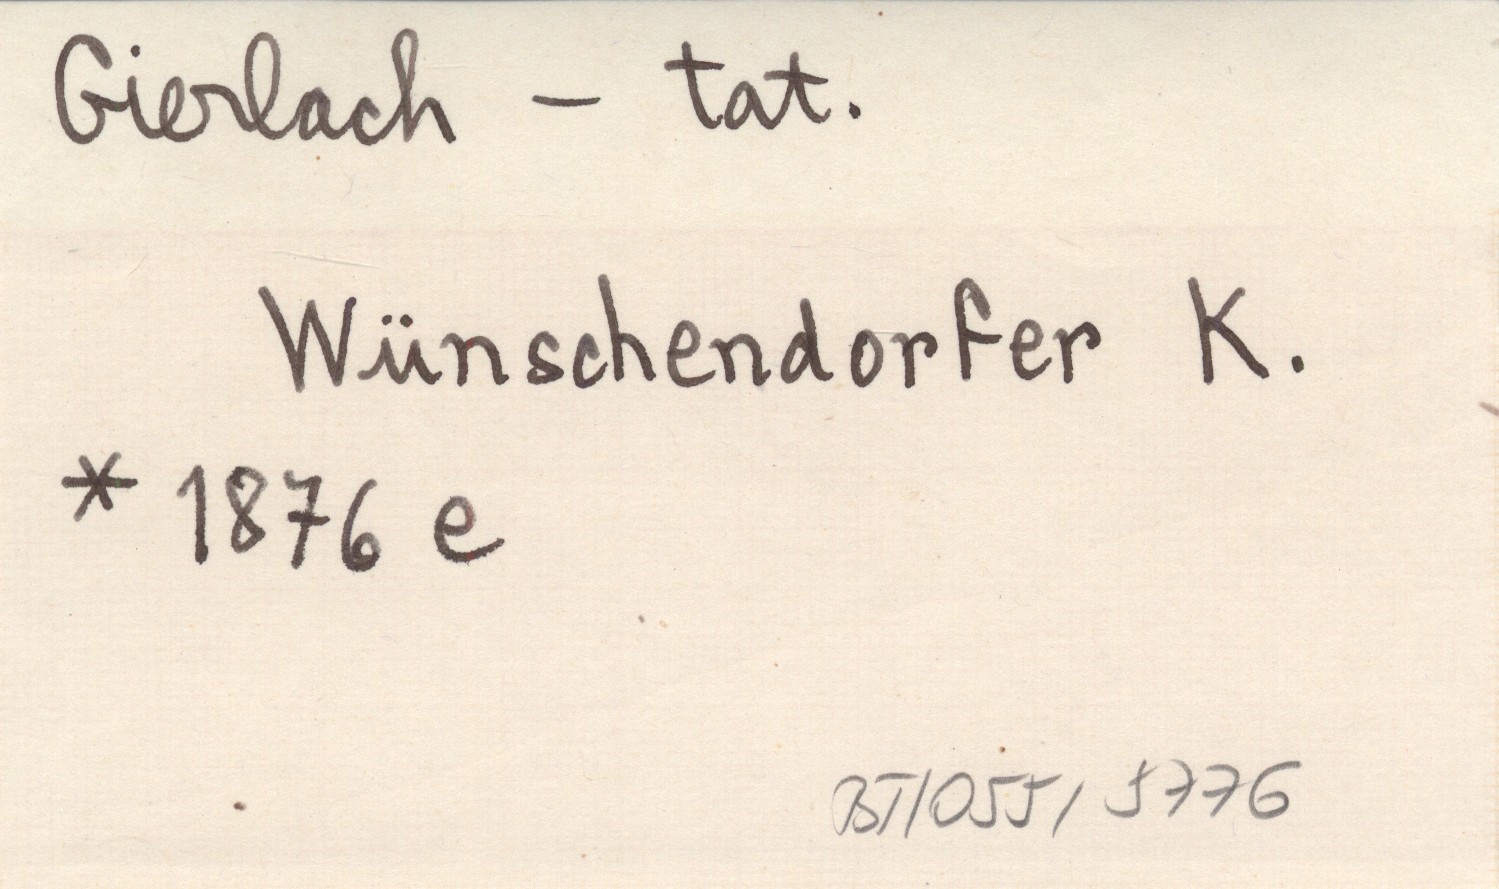 Gierlach - tat.
Wünschendorfer K.
* 1876 e
BT/055/5776